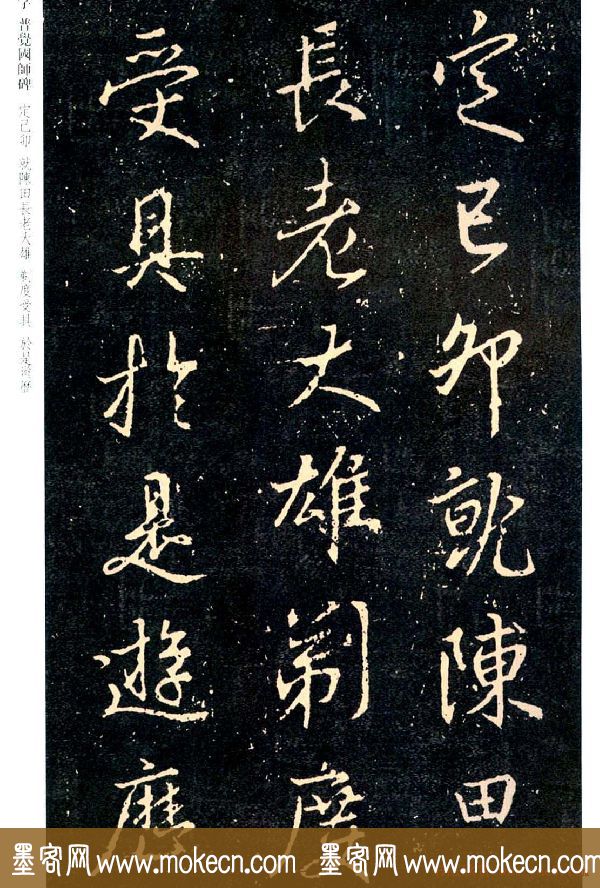 定己卯就陳田
長老大雄剃度
受具於是遊歷
普覺國師碑 定己卯 就陳田長老大雄 剃度受具 於是遊歷
墨客网 www.mokecn.com 墨客网 www.mokecn.com